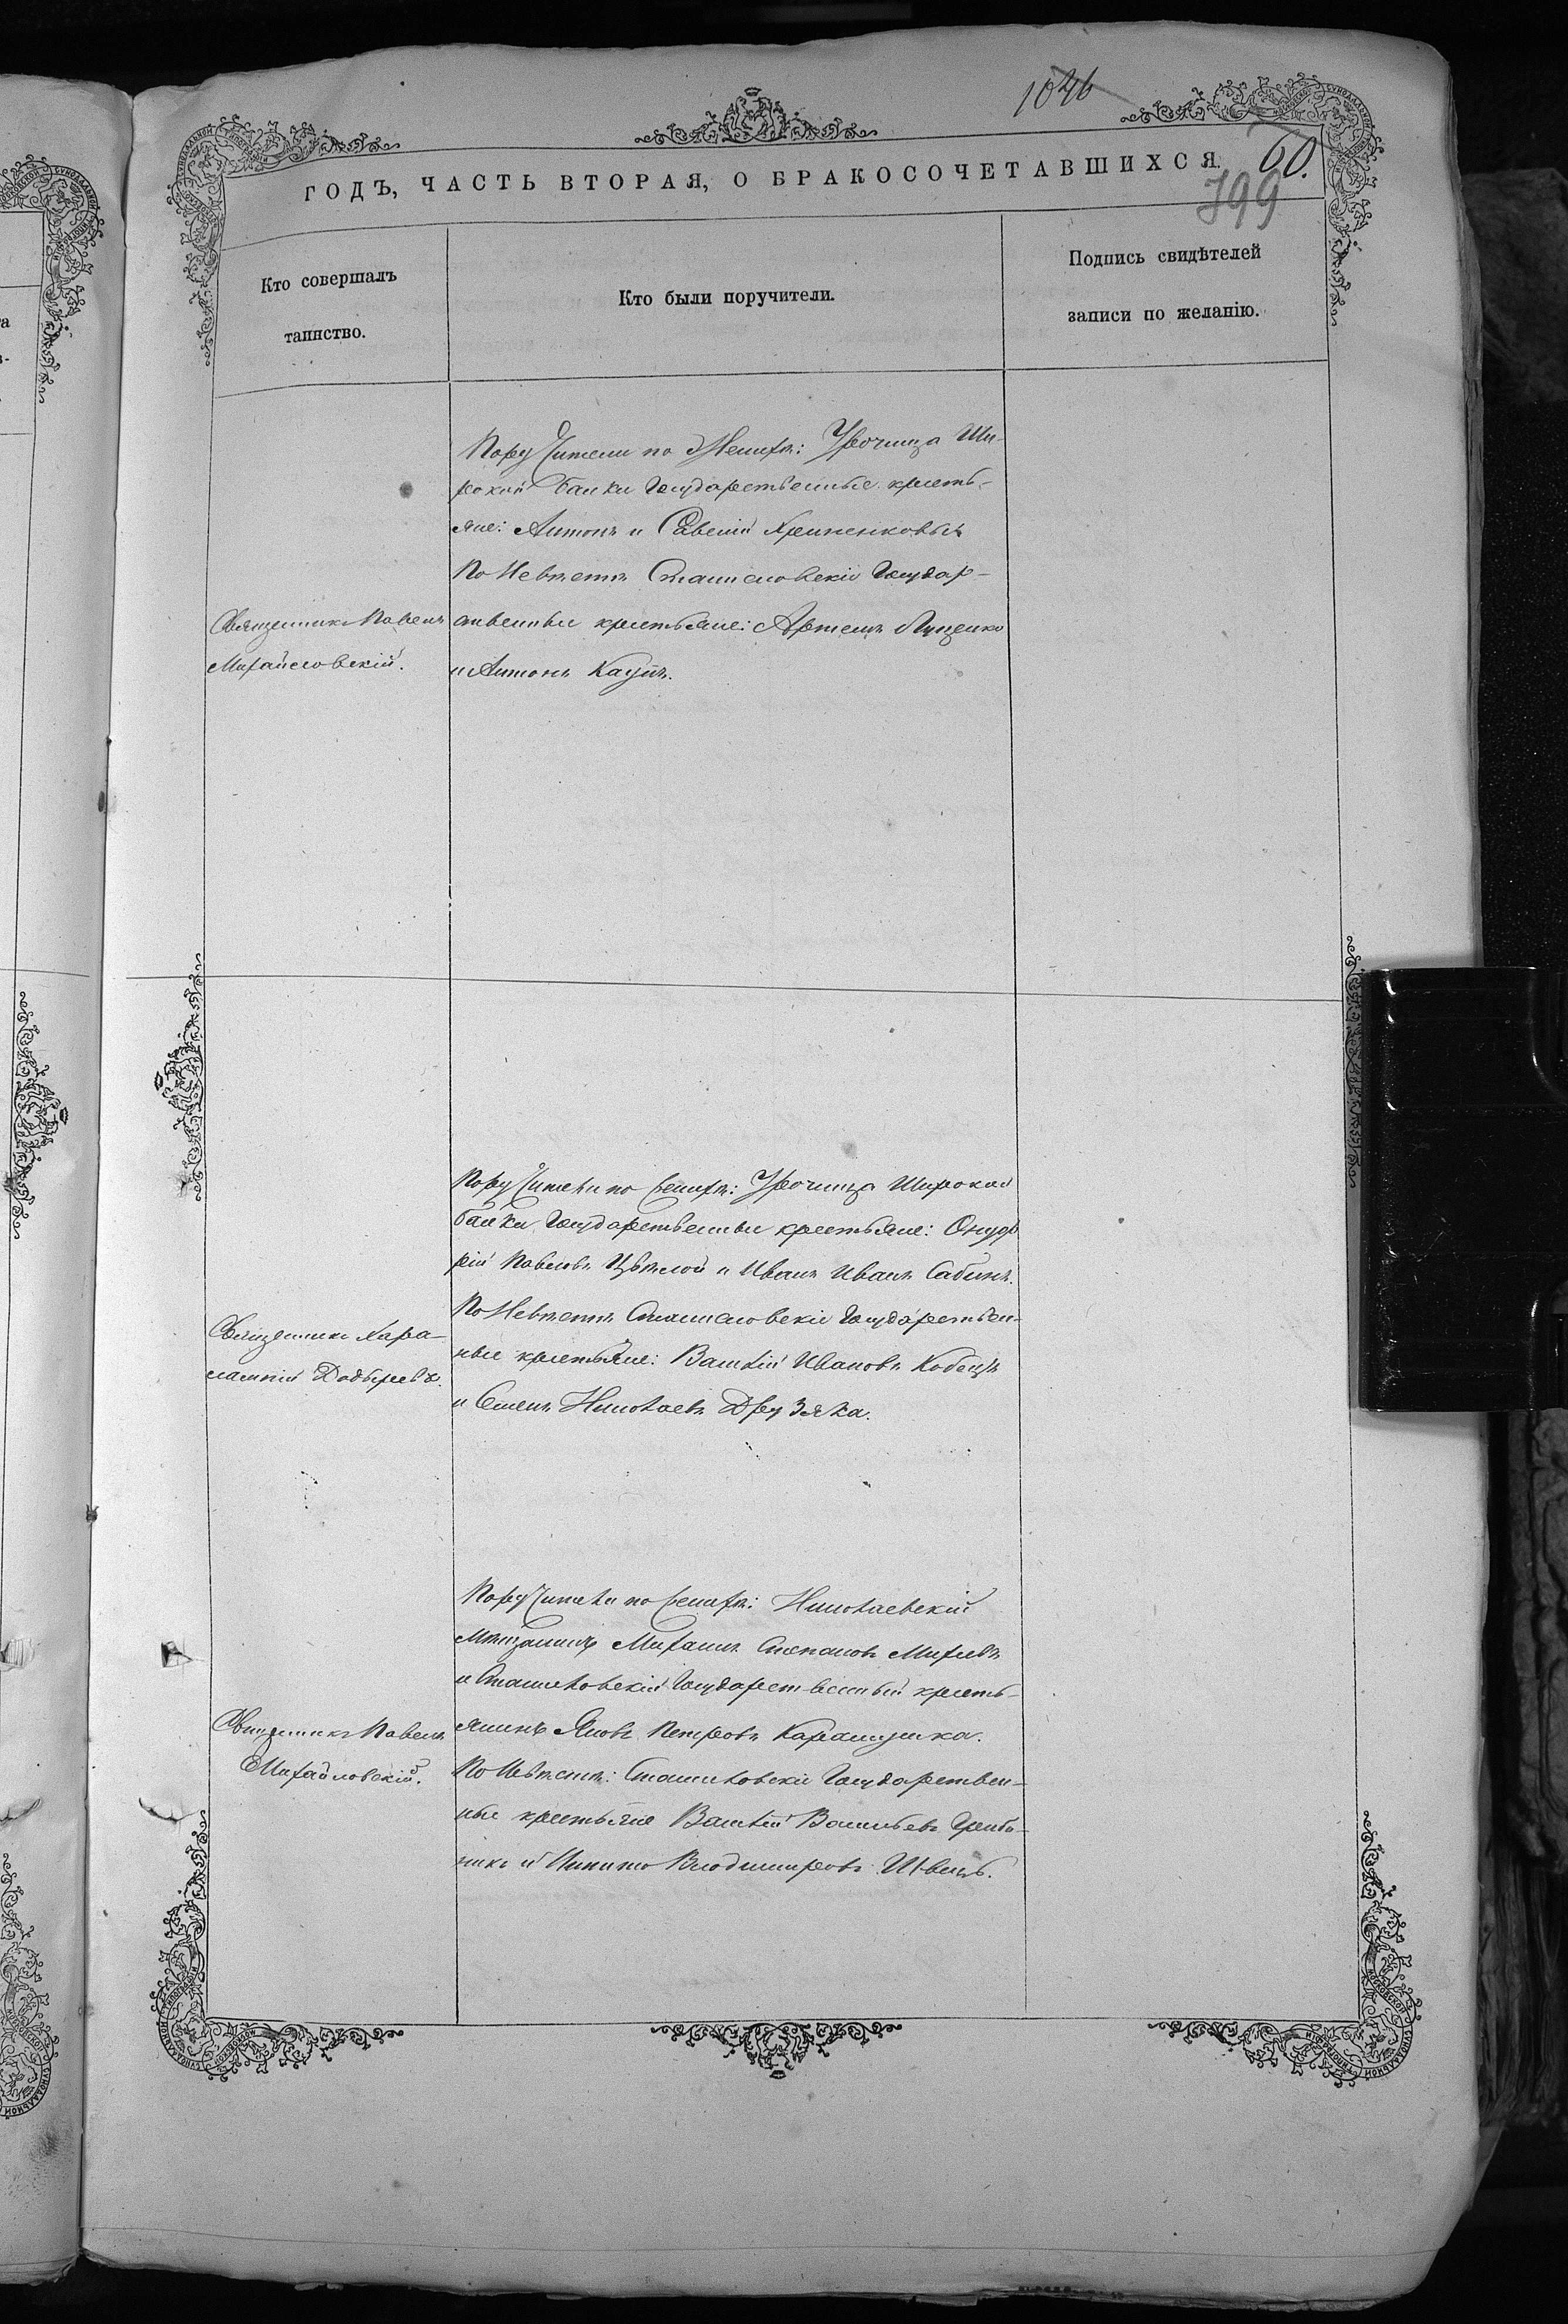 1046
ГОДЪ, ЧАСТЬ ВТОРАЯ, О БРАКОСОЧЕТАВШИХСЯ.
60.
799
Кто совершалъ
таинство.
Кто были поручители.
Подпись свидѣтелей
записи по желанію.
Поручители по Женихѣ: Урочища Ши-
рокой балки Государственные кресть-
яне: Антонъ и Савелій
По Невѣстѣ Станиславскіе Государ-
ственные крестьяне: Артемъ Луценко
и Антонъ
Священникъ Павелъ
Михайловскій.
Поручители по Женихѣ: Урочища Широкой
балки Государственные крестьяне: Онуф
рій Павловъ Цвѣлой и Иванъ Иванъ Сабинъ.
По Невѣстѣ Станиславскіе Государствен-
ные крестьяне: Василій Ивановъ Кобецъ
и Семенъ Николаевъ Друзяка.
Священникъ Хара-
лампій
Поручители по Женихѣ: Николаевскій
мѣщанинъ Михаилъ Степановъ Михневъ
и Станиславскій Государственный кресть-
янинъ Яковъ Петровъ
По Невѣстѣ: Станиславскіе Государствен-
ные крестьяне Василій Васильевъ
никъ и Никита Владимировъ Швецъ.
Священникъ Павелъ
Михайловскій.